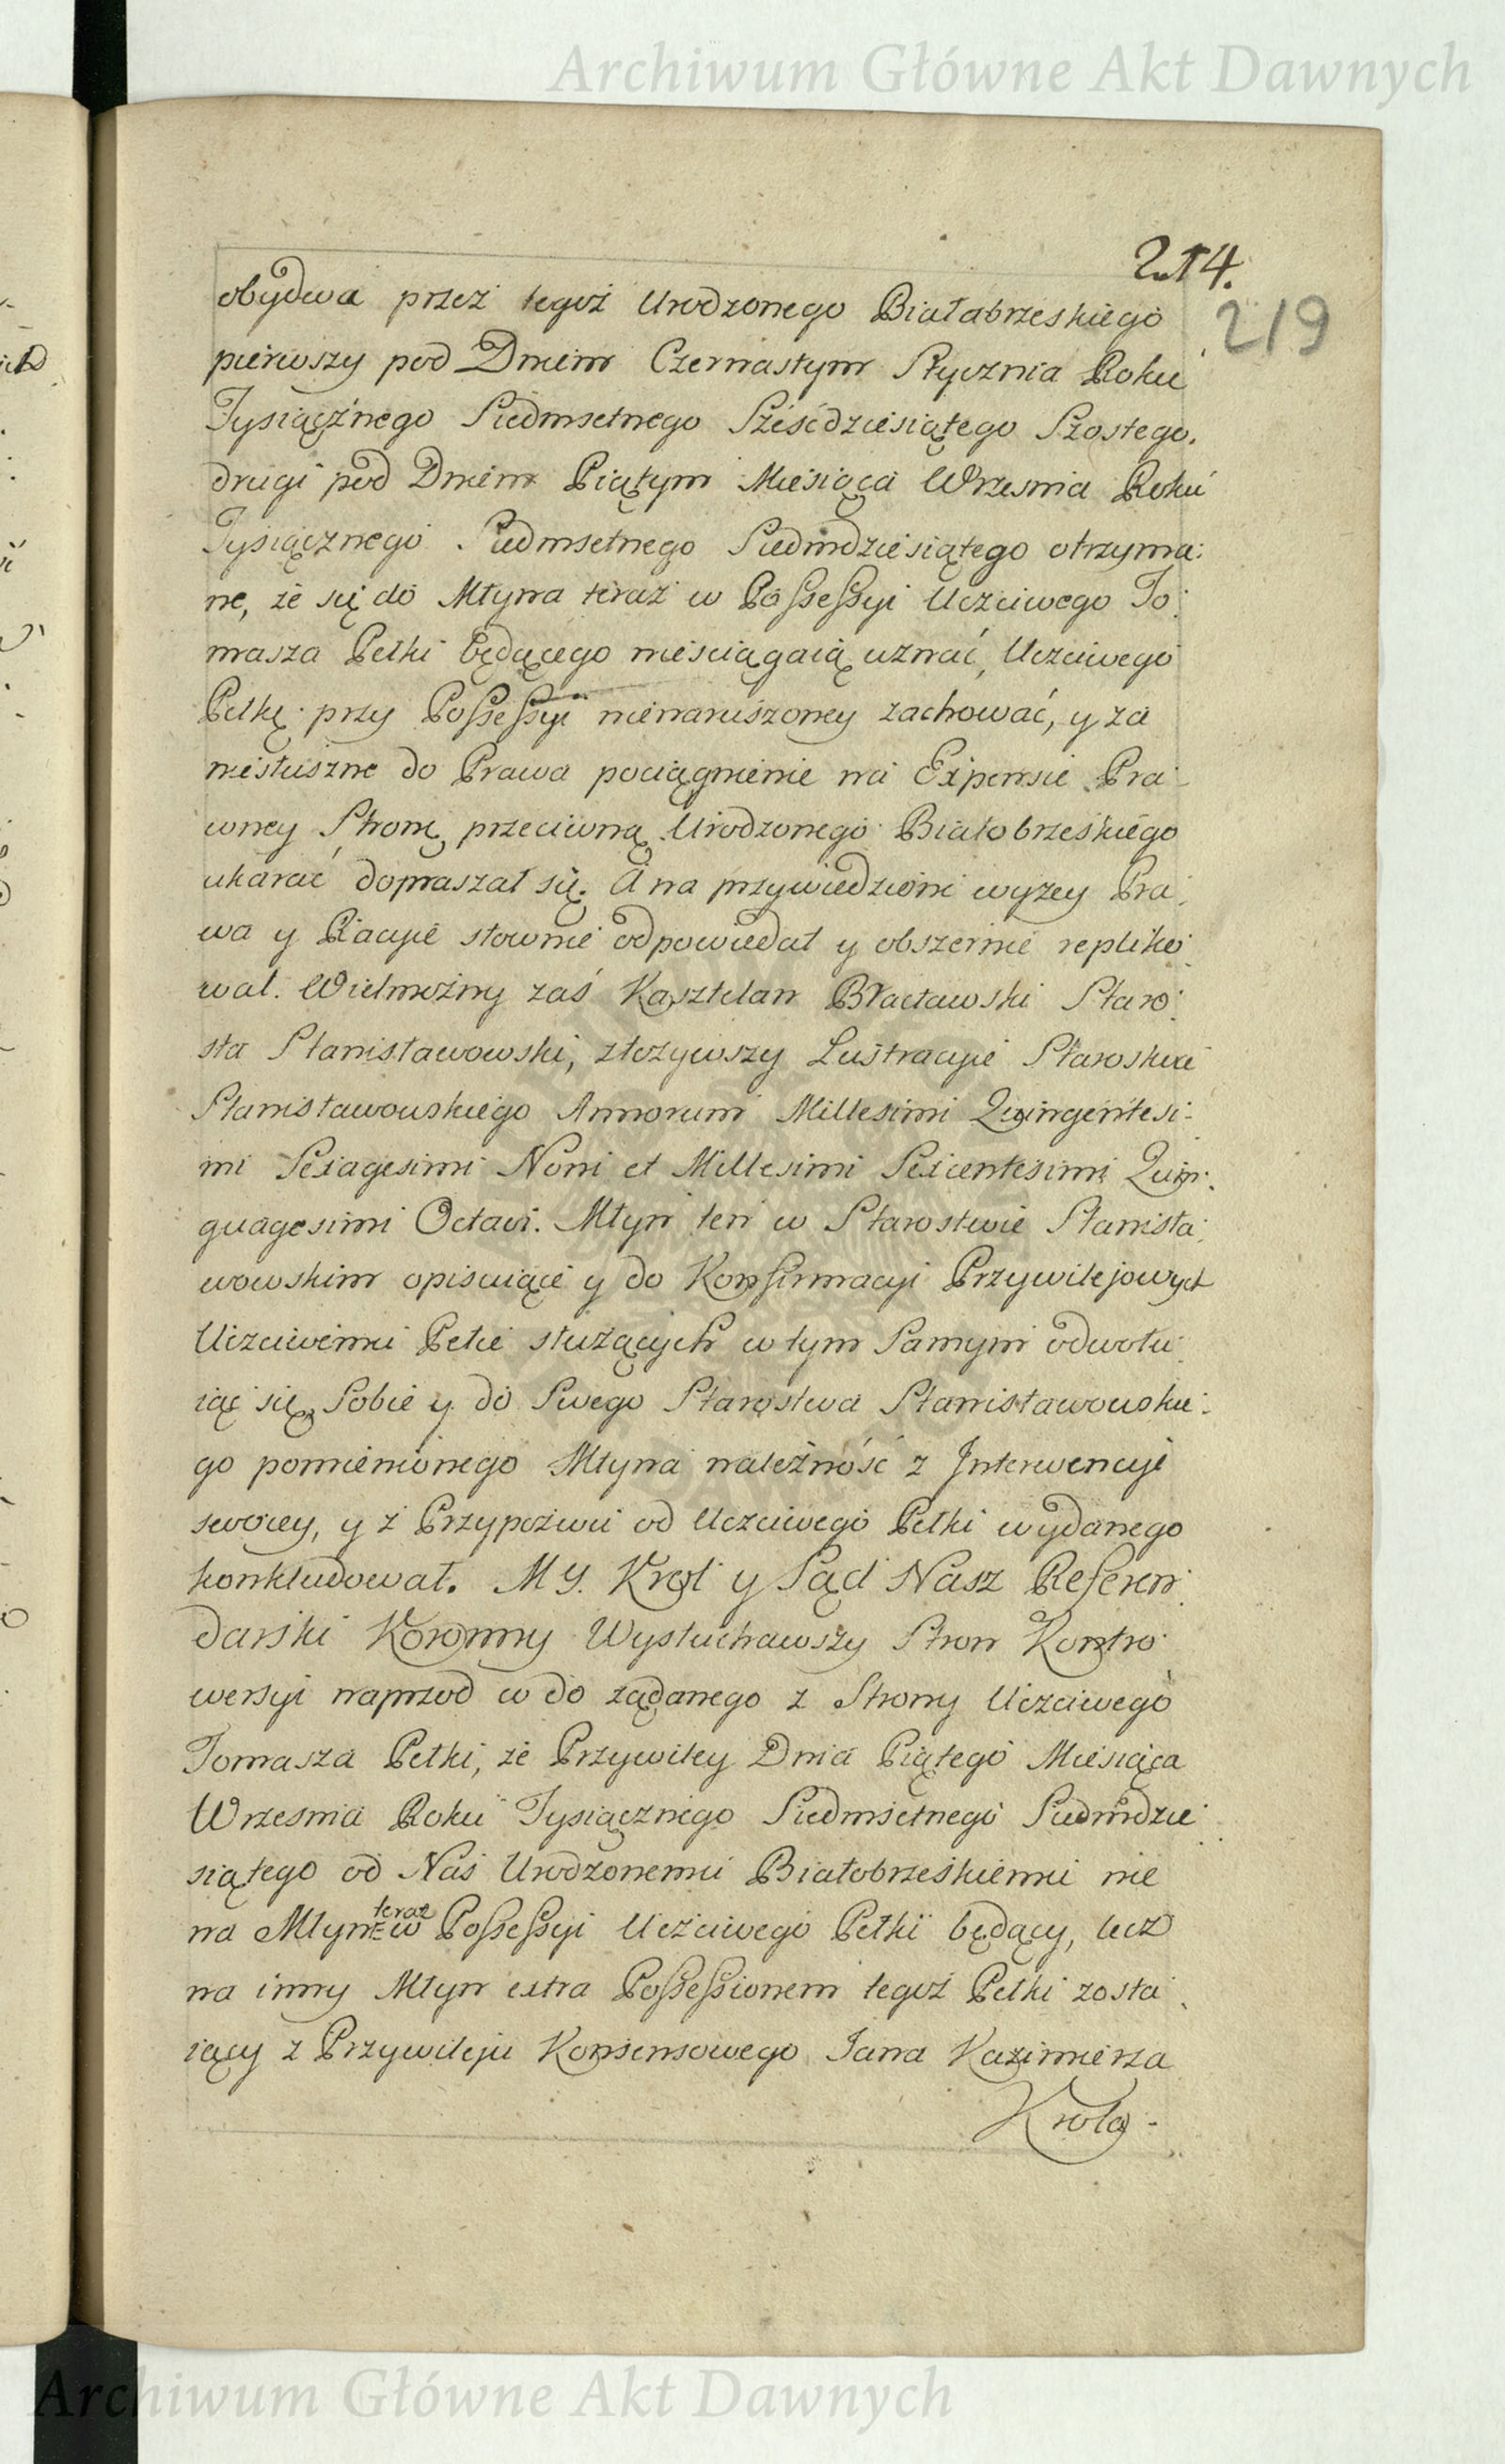 Archiwum Główne Akt Dawnych
214.
219
obydwa przez tegoż Urodzonego Białabrzeskiego
pierwszy pod Dniem Czernastym Stycznia Roku
Tysiącznego Siedmsetnego Sześćdziesiątego Szostego.
drugi pod Dniem Piątym Miesiąca Wrzesnia Roku
Tysiącznego Siedmsetnego Siedmdziesiątego otrzyma:
ne, że się do Młyna teraz w Possessyi Uczciwego To:
masza Pełki będącego nieściągaią uznać, Uczciwego
Pełkę przy Possessyi nienaruszoney zachować, y za
niesłuszne do Prawa pociągnienie na Expensie Pra:
wney Stronę przeciwną Urodzonego Białobrzeskiego
ukarać dopraszał się. A na przywiedzione wyżey Pra:
wa y Racyie słownie odpowiedał y obszernie repliko:
wał. Wielmożny zaś Kasztelan Bracławski Staro:
sta Stanisławowski, złożywszy Lustracyie Starostwa
Stanisławowskiego Annorum Millesimi Quingentesi:
mi Sexagesimi Noni et Millesimi Sexcentesimi Quin:
quagesimi Octavi. Młyn ten w Starostwie Stanisła:
wowskim opisuiące y do Konfirmacyi Przywilejowych
Uczciwemu Pełce służących w tym Samym odwołu:
iąc się, Sobie y do Swego Starostwa Stanisławowskie:
go pomienionego Młyna należność z Interwencyi
swoiey, y z Przypozwu od Uczciwego Pełki wydanego
konkludował. MY. Krol y Sąd Nasz Referen:
darski Koronny Wysłuchawszy Stron Kontro:
wersyi naprzod co do żądanego z Strony Uczciwego
Tomasza Pełki, że Przywiley Dnia Piątego Miesiąca
Wrzesnia Roku Tysiącznego Siedmsetnego Siedmdzie:
siątego od Nas Urodzonemu Białobrzeskiemu nie
teraz
na Młyn w Possessyi Uczciwego Pełki będący, lecz
na inny Młyn extra Possessionem tegoż Pełki zosta:
iący z Przywileju Konsensowego Jana Kazimierza
Krola
Archiwum Główne Akt Dawnych